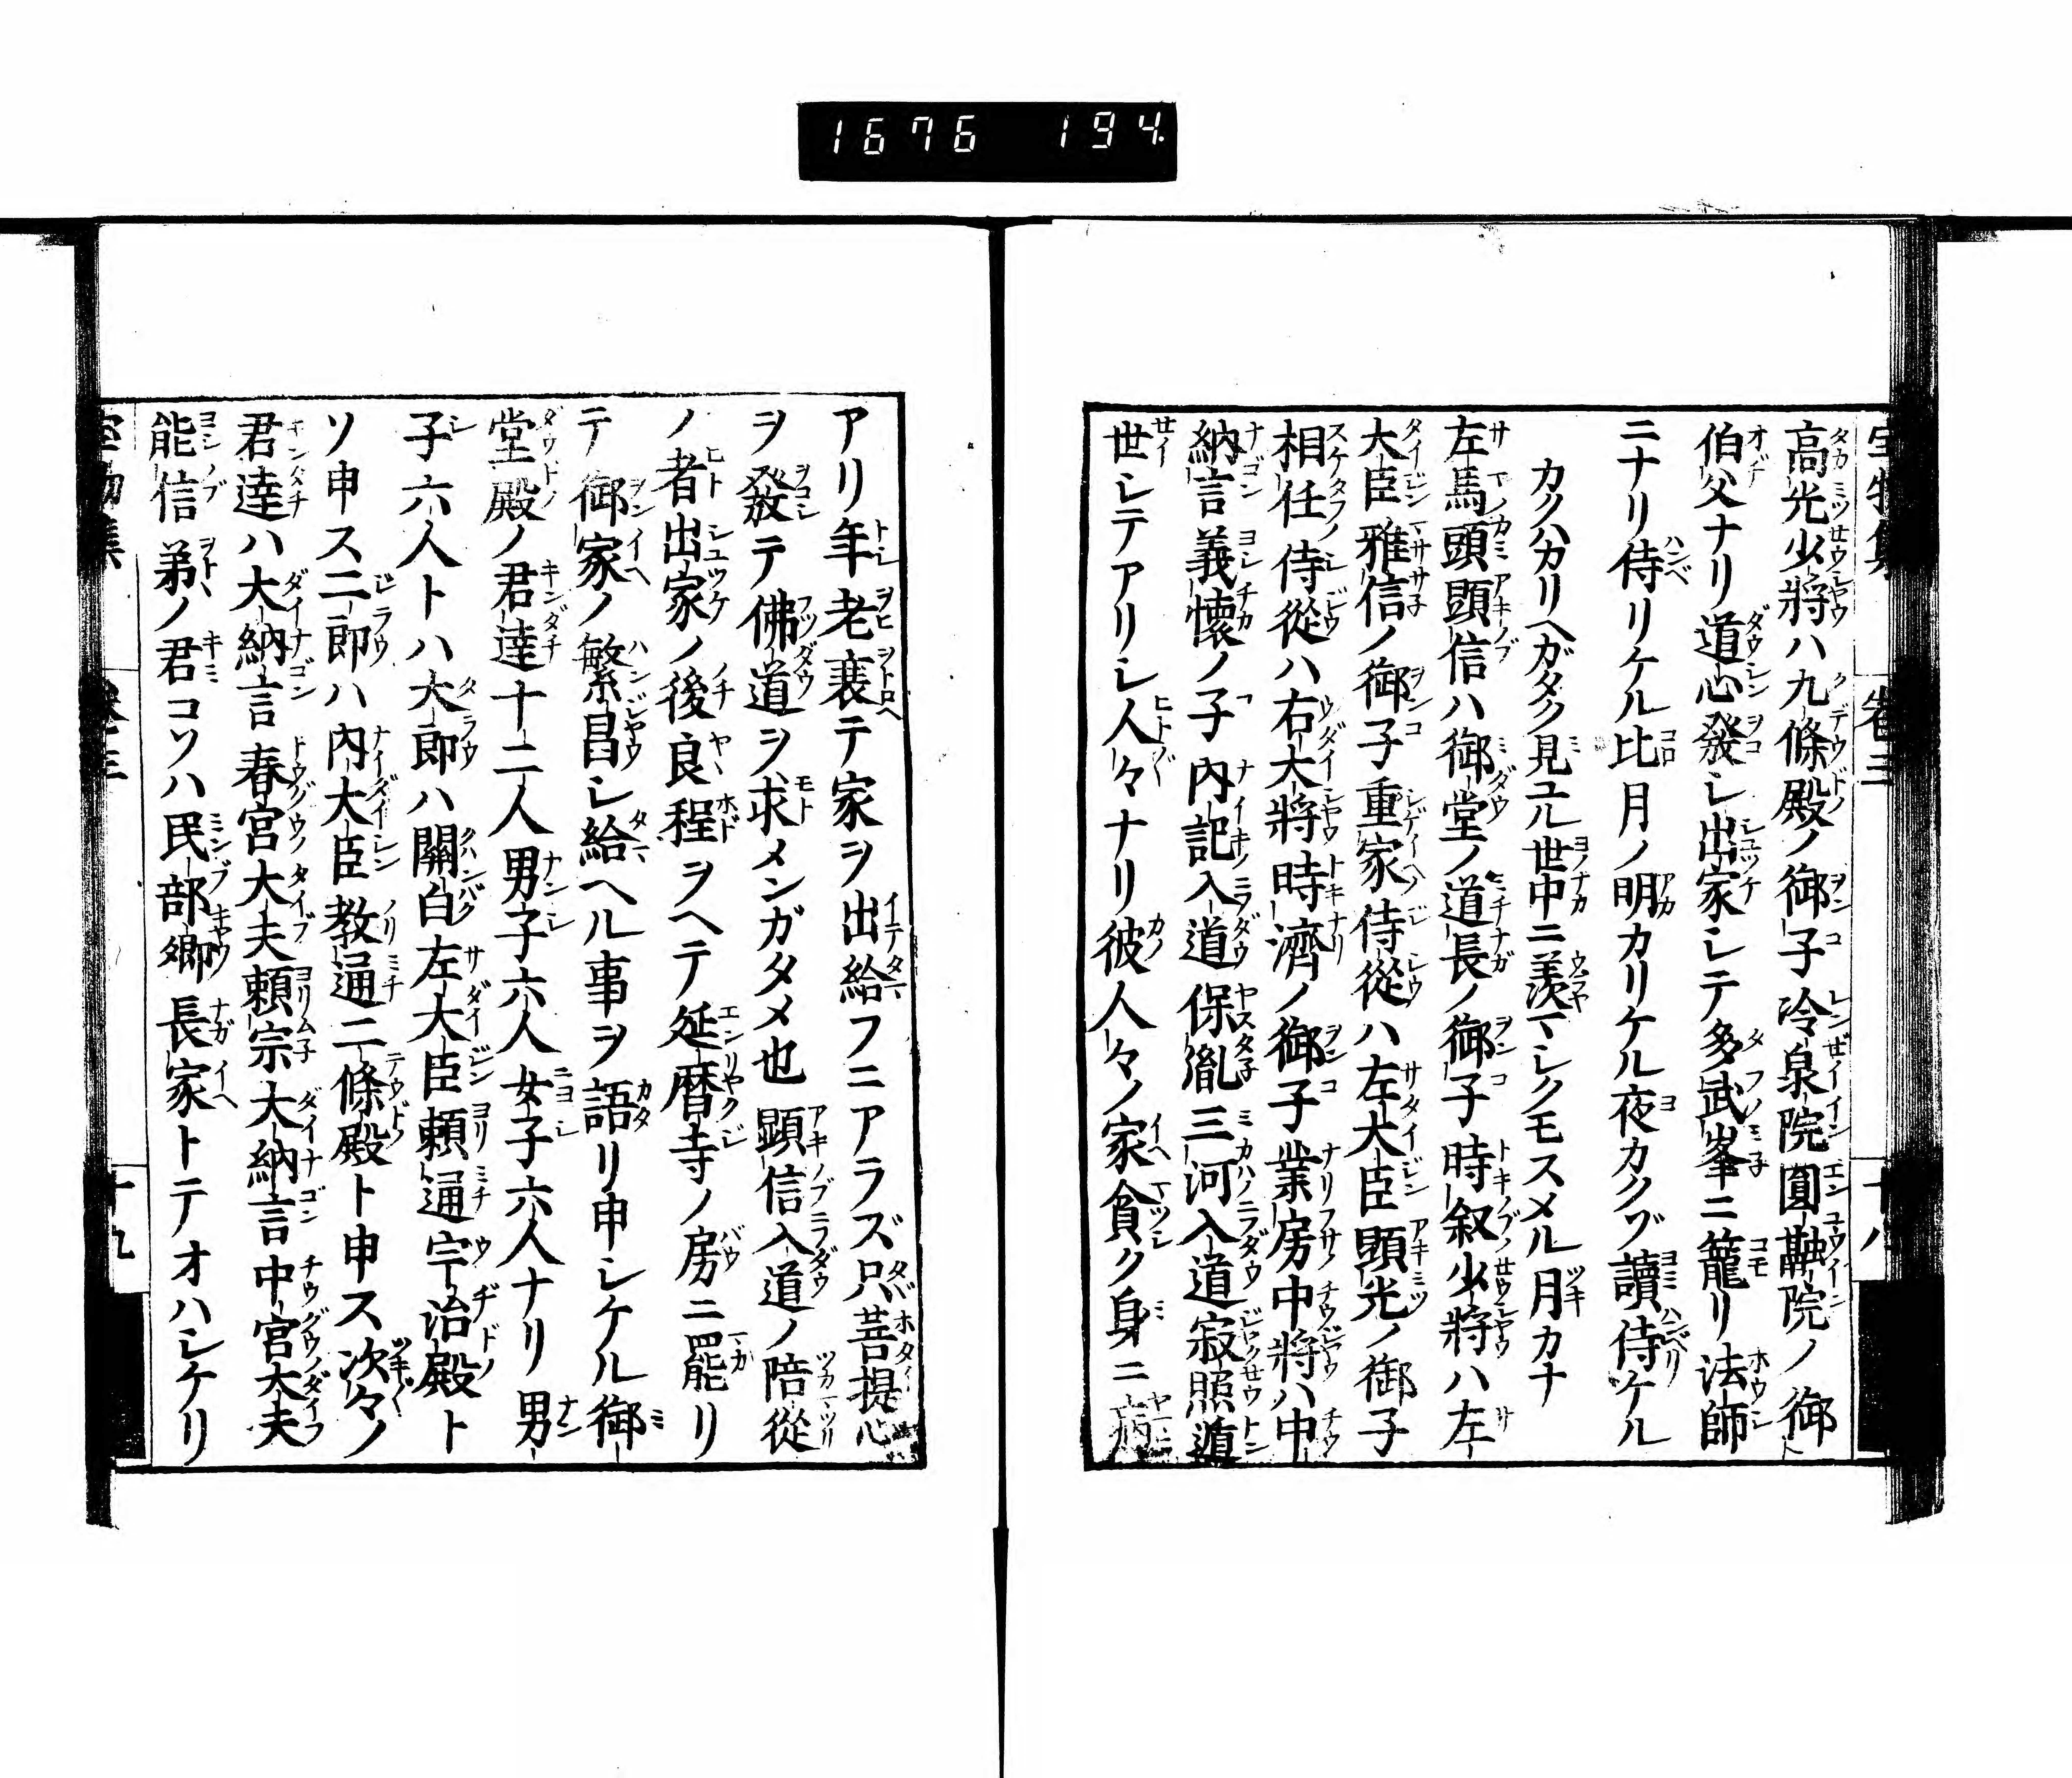 1676 194
高光少將ハ九條殿ノ御子冷泉院圓融院ノ御
伯父ナリ道心發シ出家シテ多武峯ニ籠リ法師
ニナリ侍リケル比月ノ明カリケル夜カクゾ讀侍ケル
カクハカリヘガタク見ユル世中ニ羨マシクモスメル月カナ
左馬頭顕信ハ御堂ノ道長ノ御子時叙少將ハ左
大臣雅信ノ御子重家侍從ハ左大臣顕光ノ御子
相任侍從ハ右大將時濟ノ御子業房中將ハ中
納言義懷ノ子内記入道保胤三河入道寂照遁
世シテアリシ人々ナリ彼人々ノ家貧ク身ニ病
アリ年老衰テ家ヲ出給フニアラズ只菩提心
ヲ發テ佛道ヲ求メンガタメ也顕信入道ノ陪從
ノ者出家ノ後良程ヲヘテ延暦寺ノ房ニ罷リ
テ御家ノ繁昌シ給ヘル事ヲ語リ申シケル御
堂殿ノ君達十二人男子六人女子六人ナリ男
子六人トハ大郎ハ關白左大臣頼通宇治殿ト
ソ申ス二郎ハ内大臣教通二條殿ト申ス次々ノ
君達ハ大納言春宮大夫頼宗大納言中宮大夫
能信弟ノ君コソハ民部卿長家トテオハシケリ